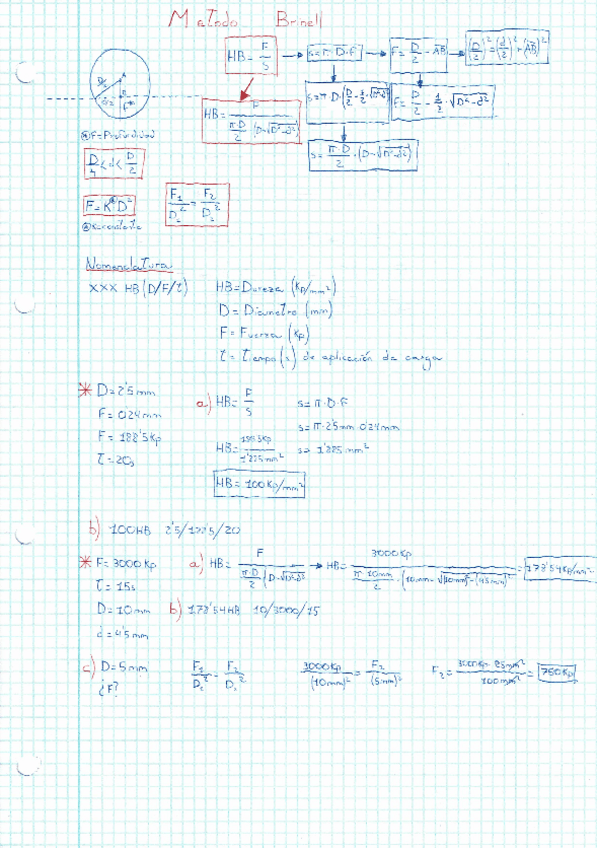 Metodo Brinell
HB = F/S → s = π·D·F → F = D/2 - AB → (D/2)² = (d/2)² + (AB)²
HB = F / (π·D/2 (D-√D²-d²))
s = π·D·(D/2 - 1/2·√D²-d²)
F = D/2 - 1/2·√D²-d²
s = π·D/2·(D-√D²-d²)
F = Profundidad
D/4 < d < D/2
F = K·D²
K = constante
F₁/D₁² = F₂/D₂²
Nomenclatura
XXX HB (D/F/t)
HB = Dureza (Kp/mm²)
D = Diametro (mm)
F = Fuerza (Kp)
t = tiempo (s) de aplicación de carga
* D = 2'5 mm
F = 0'24 mm
F = 188'5 Kp
t = 20s
a) HB = F/S
s = π·D·F
s = π·2'5 mm·0'24 mm
HB = 188'5 Kp / 1'885 mm²
s = 1'885 mm²
HB = 100 Kp/mm²
b) 100HB 2'5/187'5/20
* F = 3000 Kp
t = 15s
D = 10 mm
d = 4'5 mm
a) HB = F / (π·D/2 (D-√D²-d²)) → HB = 3000 Kp / (π·10mm/2·(10mm-√(10mm)²-(4'5mm)²)) = 178'54 Kp/mm²
b) 178'54HB 10/3000/15
c) D = 5 mm
¿F?
F₁/D₁² = F₂/D₂²
3000 Kp/(10mm)² = F₂/(5mm)²
F₂ = 3000 Kp·25mm²/100mm² = 750 Kp